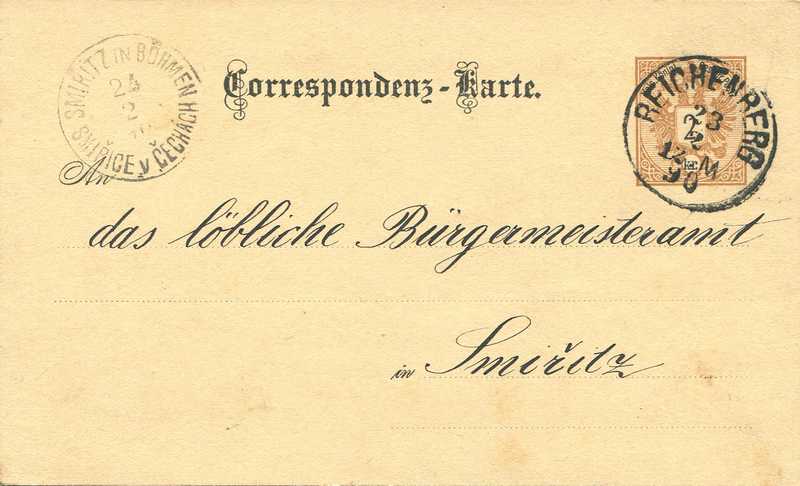 SMIRITZ IN BÖHMEN
SMIŘICE v ČECHÁCH
24
2
Correspondenz-Karte.
REICHENBERG
23
2
12 M
90
2
An
das löbliche Bürgermeisteramt
in Smiřitz